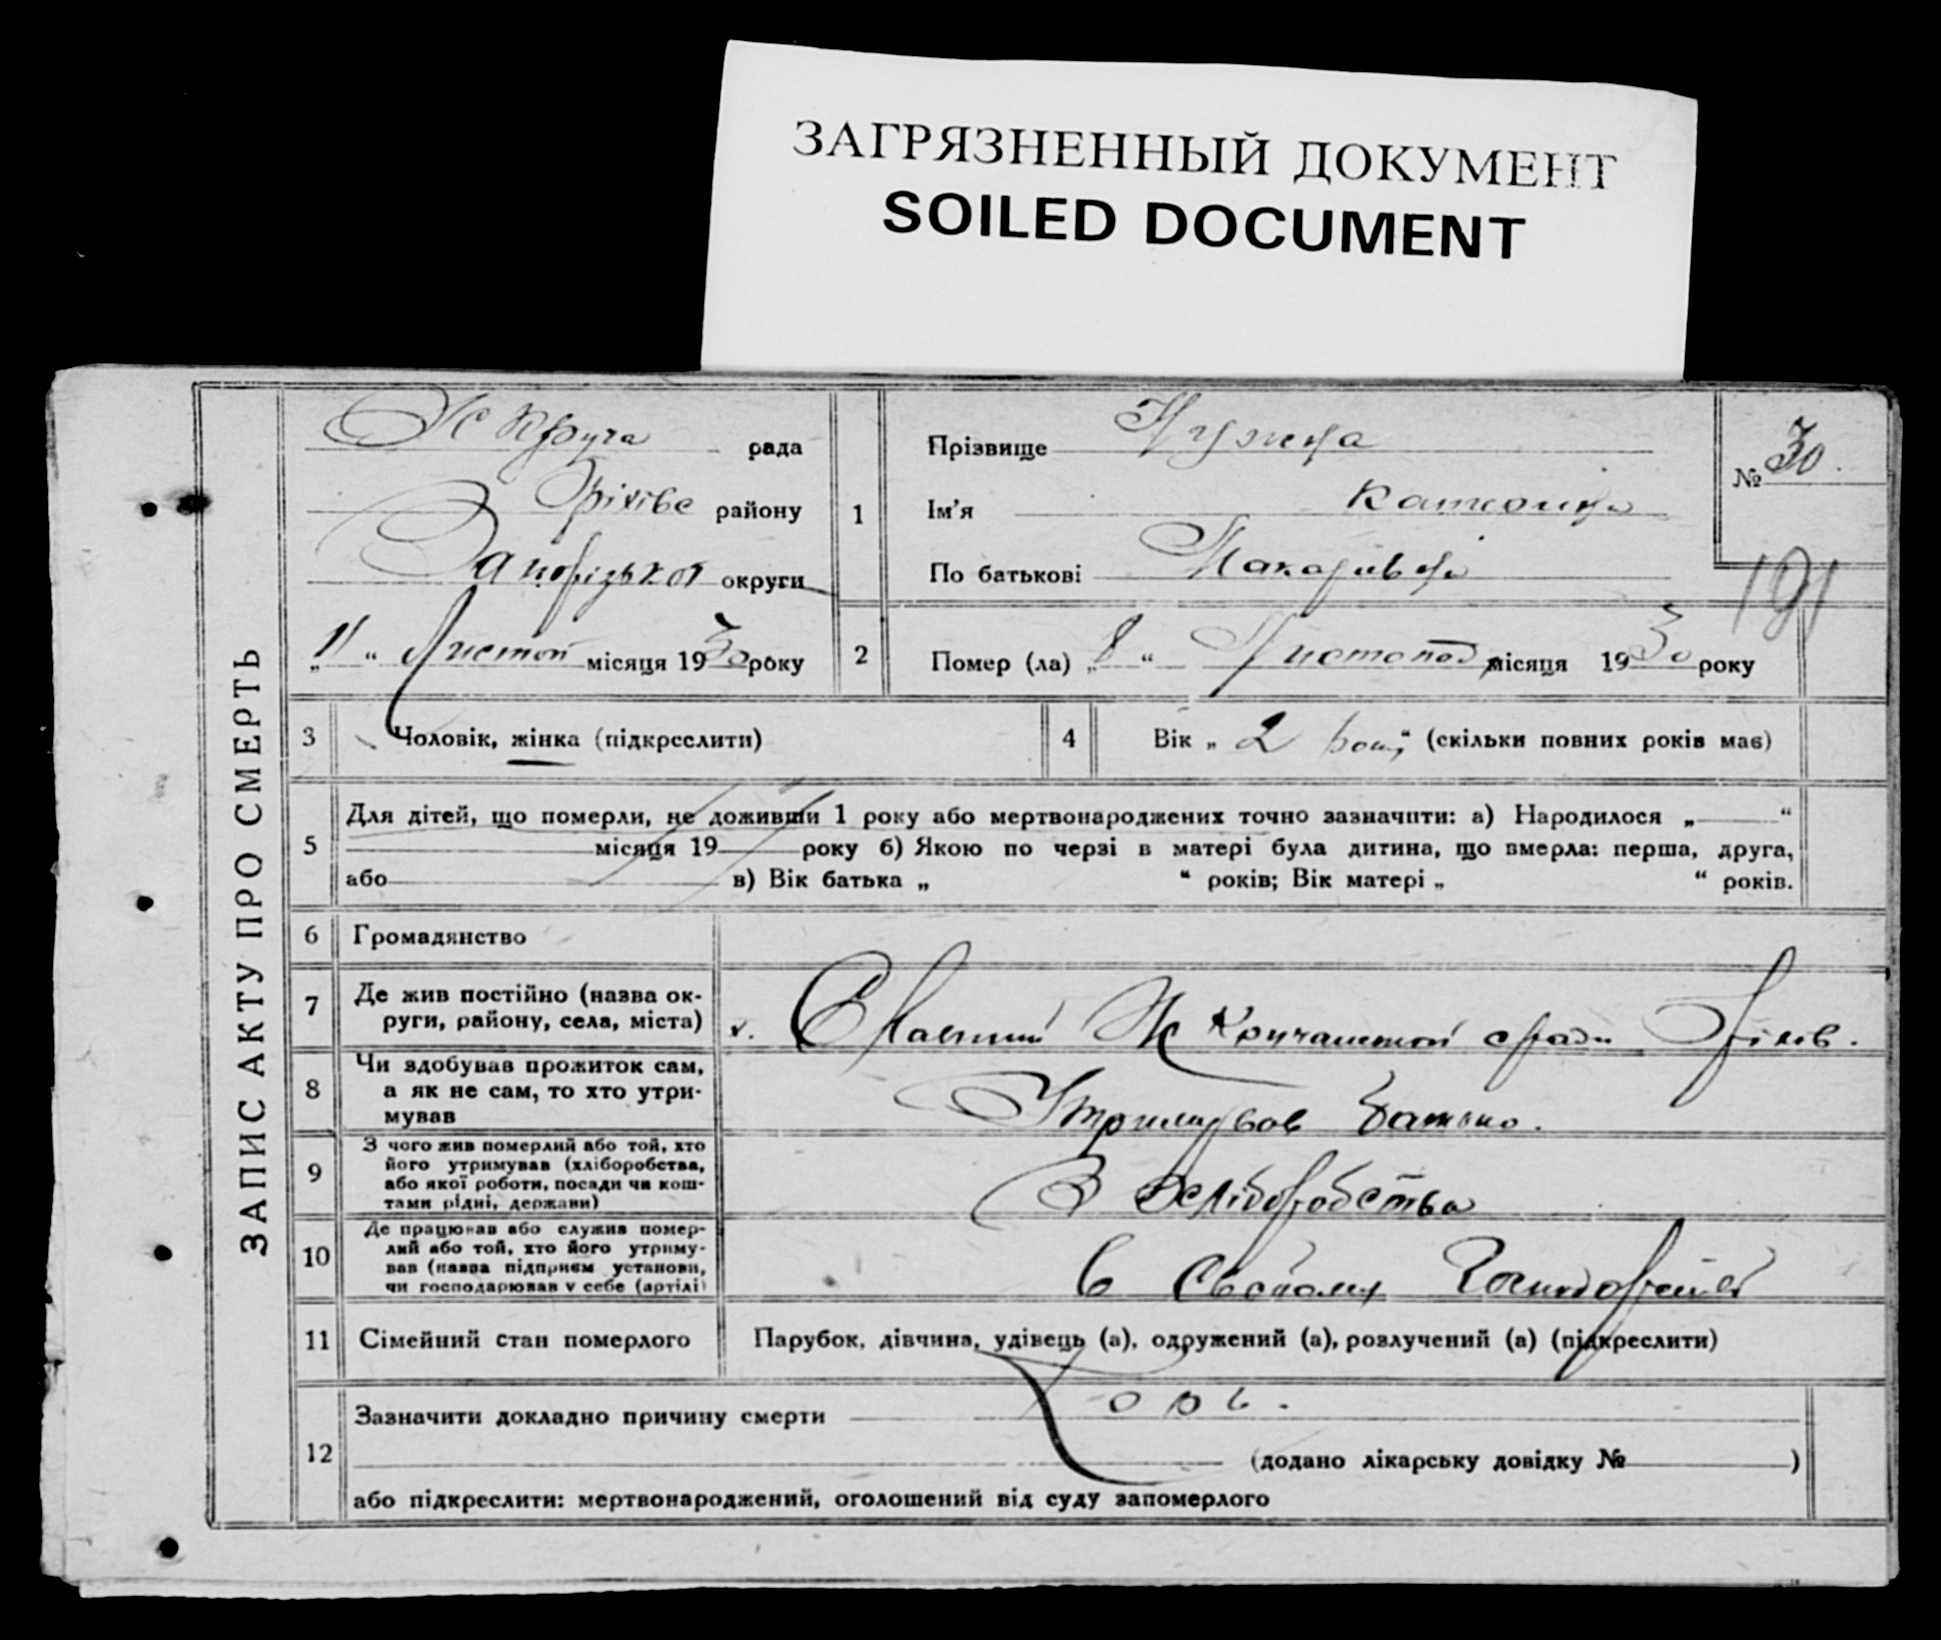 ЗАГРЯЗНЕННЫЙ ДОКУМЕНТ
SOILED DOCUMENT
ЗАПИС АКТУ ПРО СМЕРТЬ
рада
району
Запорізької округи
„11“ Листоп місяця 1930 року
1
Прізвище
Ім'я
По батькові
№ 30
191
2
Помер (ла) „8“ Листопад місяця 1930 року
3
Чоловік, жінка (підкреслити)
4
Вік „2 “ (скільки повних років має)
5
Для дітей, що померли, не доживши 1 року або мертвонароджених точно зазначити: а) Народилося „ “
місяця 19 року б) Якою по черзі в матері була дитина, що вмерла: перша, друга,
або в) Вік батька „ “ років; Вік матері „ “ років.
6
Громадянство
7
Де жив постійно (назва ок-
руги, району, села, міста)
8
Чи здобував прожиток сам,
а як не сам, то хто утри-
мував
Утримував батько.
9
З чого жив померлий або той, хто
його утримував (хліборобства,
або якої роботи, посади чи кош-
тами рідні, держави)
З хліборобства
10
Де працював або служив помер-
лий або той, хто його утриму-
вав (назва підприєм установи,
чи господарював у себе (артілі)
в своєму
11
Сімейний стан померлого
Парубок, дівчина, удівець (а), одружений (а), розлучений (а) (підкреслити)
12
Зазначити докладно причину смерти
(додано лікарську довідку № )
або підкреслити: мертвонароджений, оголошений від суду запомерлого